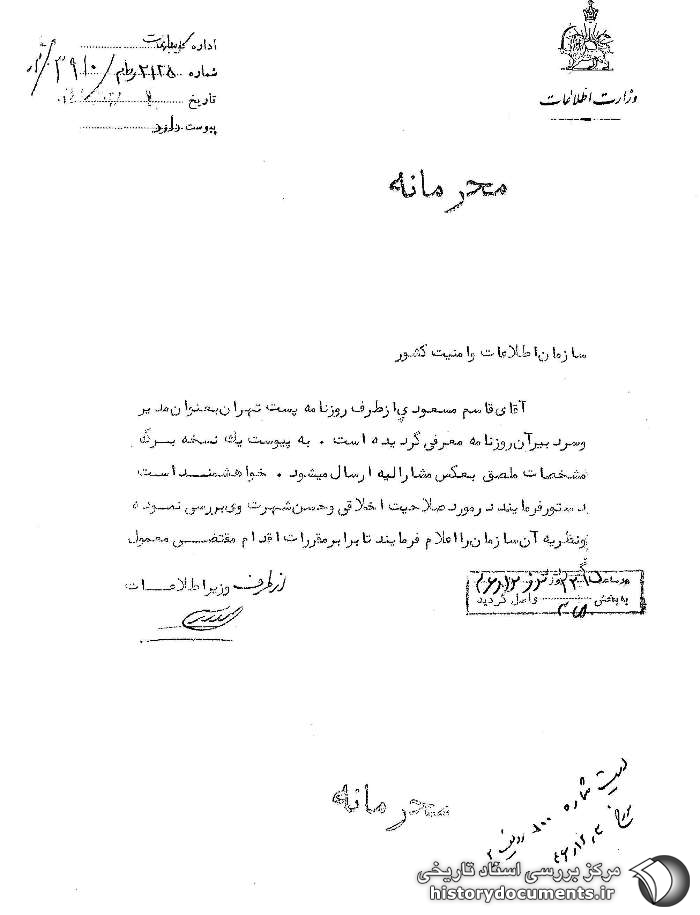 وزارت اطلاعات
اداره
شماره
تاریخ
پیوست دارد
محرمانه
سازمان اطلاعات و امنیت کشور
آقای قاسم مسعودی از طرف روزنامه پست تهران بعنوان مدیر
و سردبیر آن روزنامه معرفی گردیده است . به پیوست یك نسخه برگ
مشخصات ملصق بعکس مشارالیه ارسال میشود . خواهشمند است
دستور فرمایند در مورد صلاحیت اخلاقی و حسن شهرت وی بررسی نموده
و نظریه آن سازمان را اعلام فرمایند تا برابر مقررات اقدام مقتضی معمول
گردد
از طرف وزیر اطلاعات
در ساعت روز
به بخش واصل گردید
محرمانه
لیست شماره ۸۰۰ ردیف ۲
مورخ
مرکز بررسی اسناد تاریخی
historydocuments.ir